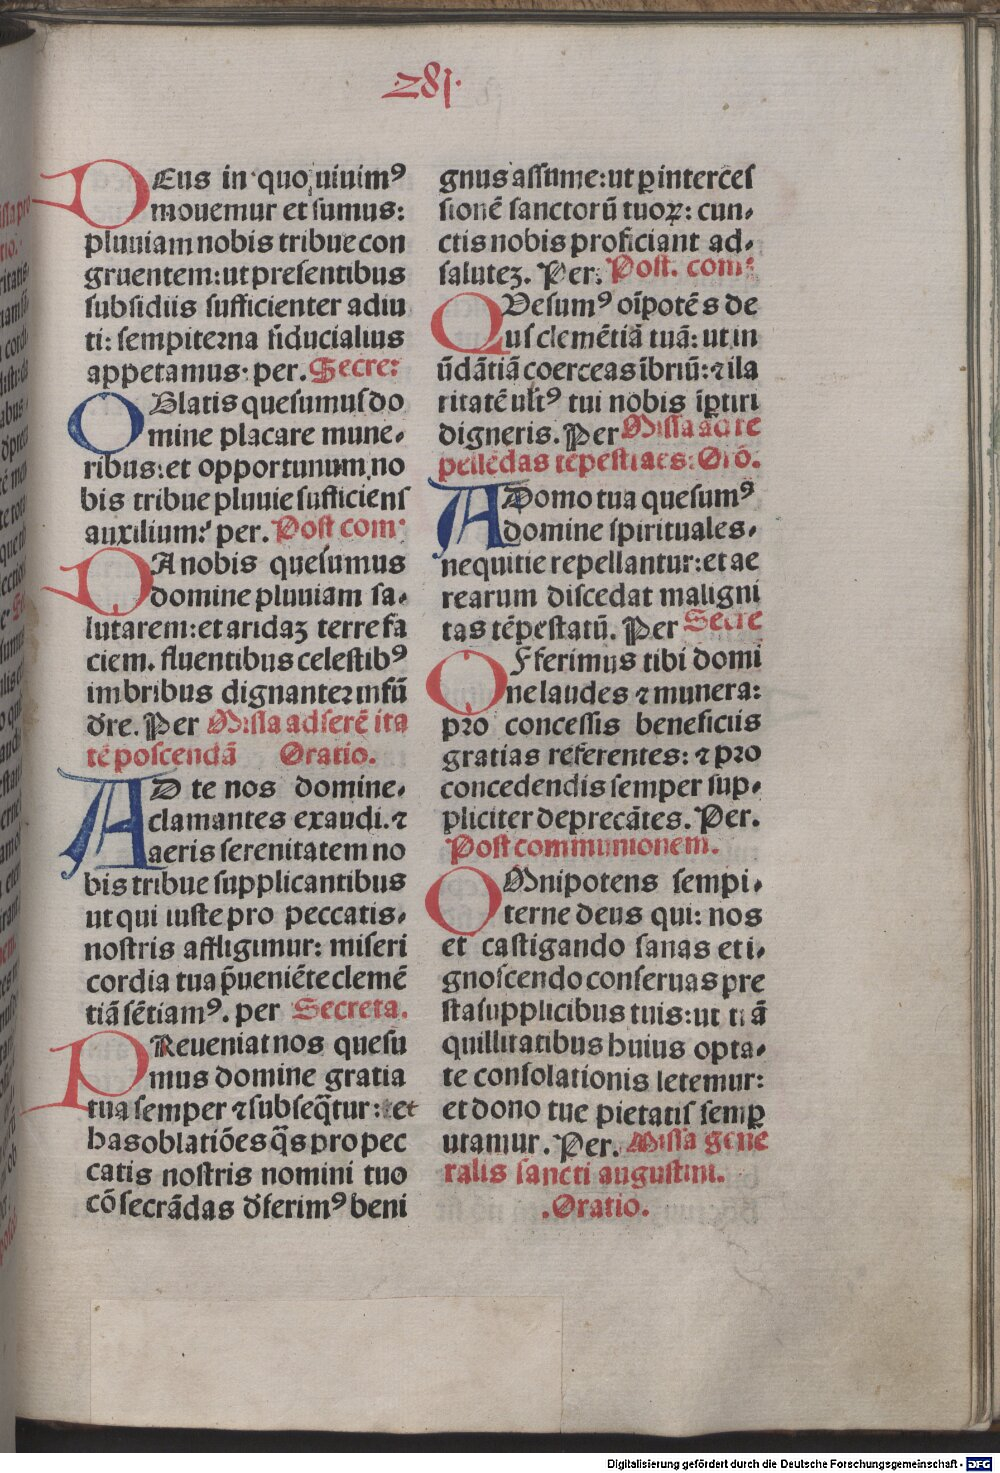 281.
DEus in quo uiuimꝰ
mouemur et sumus:
pluuiam nobis tribue con
gruentem: ut presentibus
subsidiis sufficienter adiu
ti: sempiterna fiducialius
appetamus. per. Secre:
OBlatis quesumus do
mine placare mune-
ribus: et opportunum no
bis tribue pluuie sufficiens
auxilium: per. Post com
DA nobis quesumus
domine pluuiam sa-
lutarem: et aridaʒ terre fa
ciem. fluentibus celestibꝰ
imbribus dignanter infū
d're. Per Missa ad serē ita
tē poscendā Oratio.
AD te nos domine-
clamantes exaudi. ⁊
aeris serenitatem no
bis tribue supplicantibus
ut qui iuste pro peccatis-
nostris affligimur: miseri
cordia tua p̄ueniēte clemē
tiā sētiamꝰ. per Secreta.
PReueniat nos quesu
mus domine gratia
tua semper ⁊ subseq̄tur: et
has oblatiōes q̄s pro pec
catis nostris nomini tuo
cōsecrādas d'ferimꝰ beni
gnus assume: ut ꝑ interces
sionē sanctorū tuoꝝ: cun-
ctis nobis proficiant ad-
saluteʒ. Per. Post. com:
QVesumꝰ oīpotēs de
us clemētiā tuā: ut in
ūdātiā coerceas ībriū: ⁊ ila
ritatē ult' tui nobis īꝑtiri
digneris. Per Missa ad re
pellēdas tēpestates: Orō.
A Domo tua quesumꝰ
domine spirituales-
nequitie repellantur: et ae
rearum discedat maligni
tas tēpestatū. Per Secre
OFferimus tibi domi
ne laudes ⁊ munera:
pro concessis beneficiis
gratias referentes: ⁊ pro
concedendis semper sup-
pliciter deprecātes. Per.
Post communionem.
OMnipotens sempi-
terne deus qui: nos
et castigando sanas et i-
gnoscendo conseruas pre
sta supplicibus tuis: ut trā
quillitatibus huius opta-
te consolationis letemur:
et dono tue pietatis semꝑ
utamur. Per. Missa gene
ralis sancti augustini.
.Oratio.
Digitalisierung gefördert durch die Deutsche Forschungsgemeinschaft - DFG